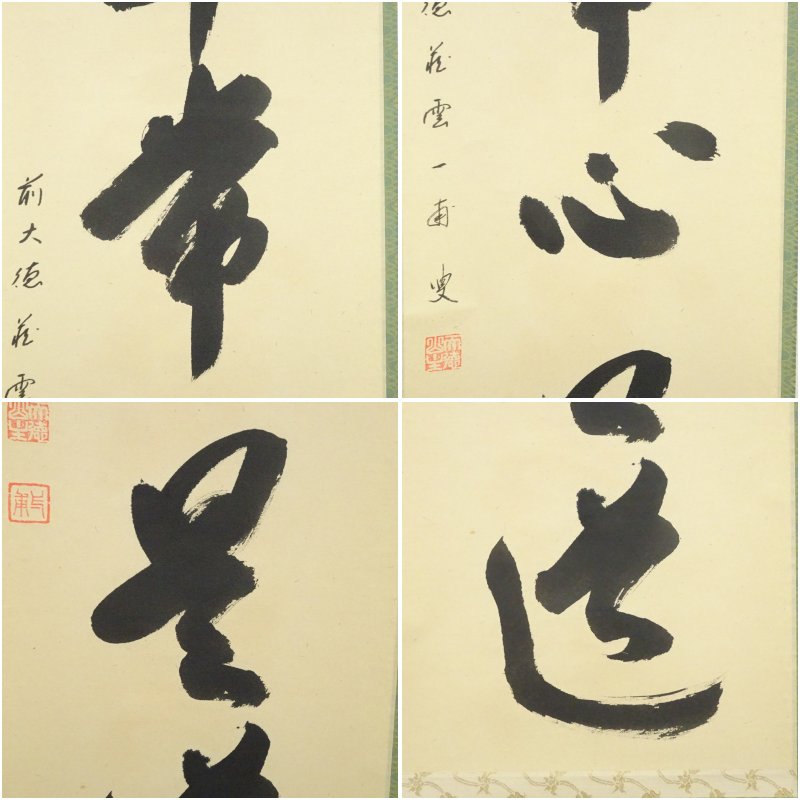 常
前大徳
雲
心
雲一甫叟
是
道